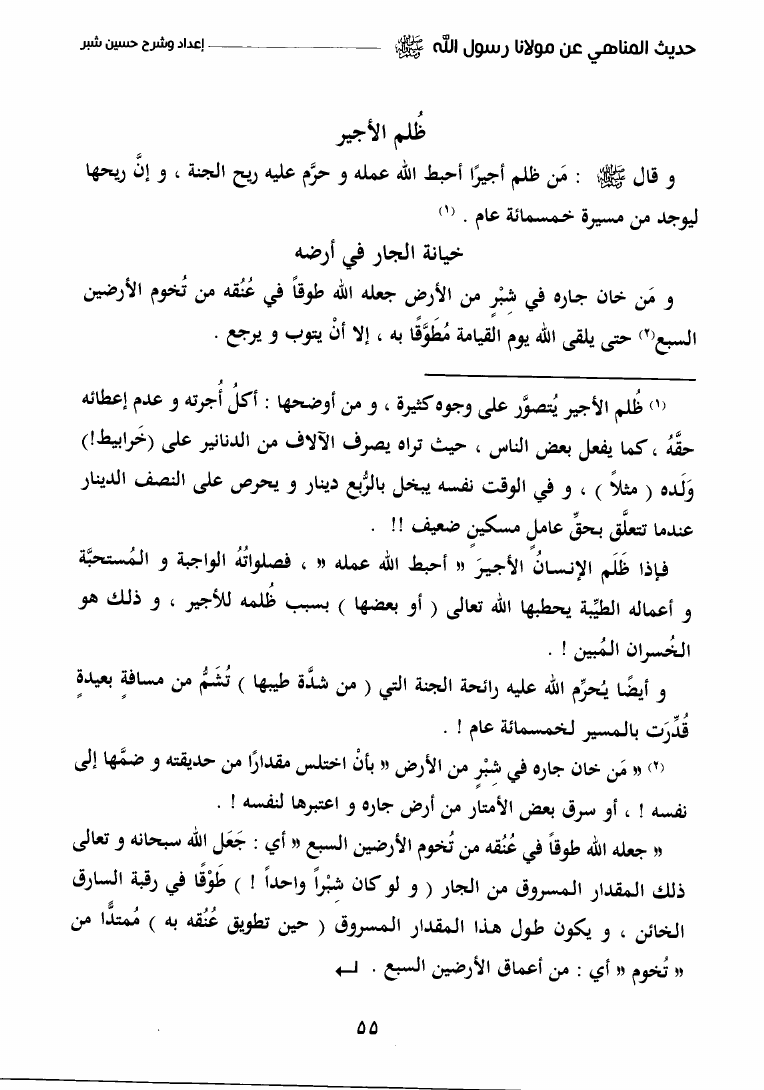 حديث المناهي عن مولانا رسول الله ﷺ ــــــــــــــــ إعداد وشرح حسين شبر
ظُلم الأجير
و قال ﷺ : مَن ظلم أجيرًا أحبط الله عمله و حرَّم عليه ريح الجنة ، و إنَّ ريحها
ليوجد من مسيرة خمسمائة عام . (١)
خيانة الجار في أرضه
و مَن خان جاره في شِبْرٍ من الأرض جعله الله طوقاً في عُنُقه من تُخوم الأرضين
السبع(٢) حتى يلقى الله يوم القيامة مُطَوَّقًا به ، إلا أنْ يتوب و يرجع .
(١) ظُلم الأجير يُتصوَّر على وجوه كثيرة ، و من أوضحها : أكلُ أُجرته و عدم إعطائه
حقَّهُ ، كما يفعل بعض الناس ، حيث تراه يصرف الآلاف من الدنانير على (خَرابيط!)
وَلَده ( مثلاً ) ، و في الوقت نفسه يبخل بالرُّبع دينار و يحرص على النصف الدينار
عندما تتعلَّق بحقِّ عاملٍ مسكينٍ ضعيف !! .
فإذا ظَلَم الإنسانُ الأجيرَ « أحبط الله عمله » ، فصلواتُهُ الواجبة و المُستحبَّة
و أعماله الطيِّبة يحطبها الله تعالى ( أو بعضها ) بسبب ظُلمه للأجير ، و ذلك هو
الخُسران المُبين ! .
و أيضًا يُحرِّم الله عليه رائحة الجنة التي ( من شدَّة طيبها ) تُشَمُّ من مسافةٍ بعيدةٍ
قُدِّرَت بالمسير لخمسمائة عام ! .
(٢) « مَن خان جاره في شِبْرٍ من الأرض » بأنْ اختلس مقدارًا من حديقته و ضمَّها إلى
نفسه ! ، أو سرق بعض الأمتار من أرض جاره و اعتبرها لنفسه ! .
« جعله الله طوقاً في عُنُقه من تُخوم الأرضين السبع » أي : جَعَل الله سبحانه و تعالى
ذلك المقدار المسروق من الجار ( و لو كان شِبْراً واحداً ! ) طَوْقًا في رقبة السارق
الخائن ، و يكون طول هذا المقدار المسروق ( حين تطويق عُنُقه به ) مُمتدًّا من
« تُخوم » أي : من أعماق الأرضين السبع . ↵
٥٥